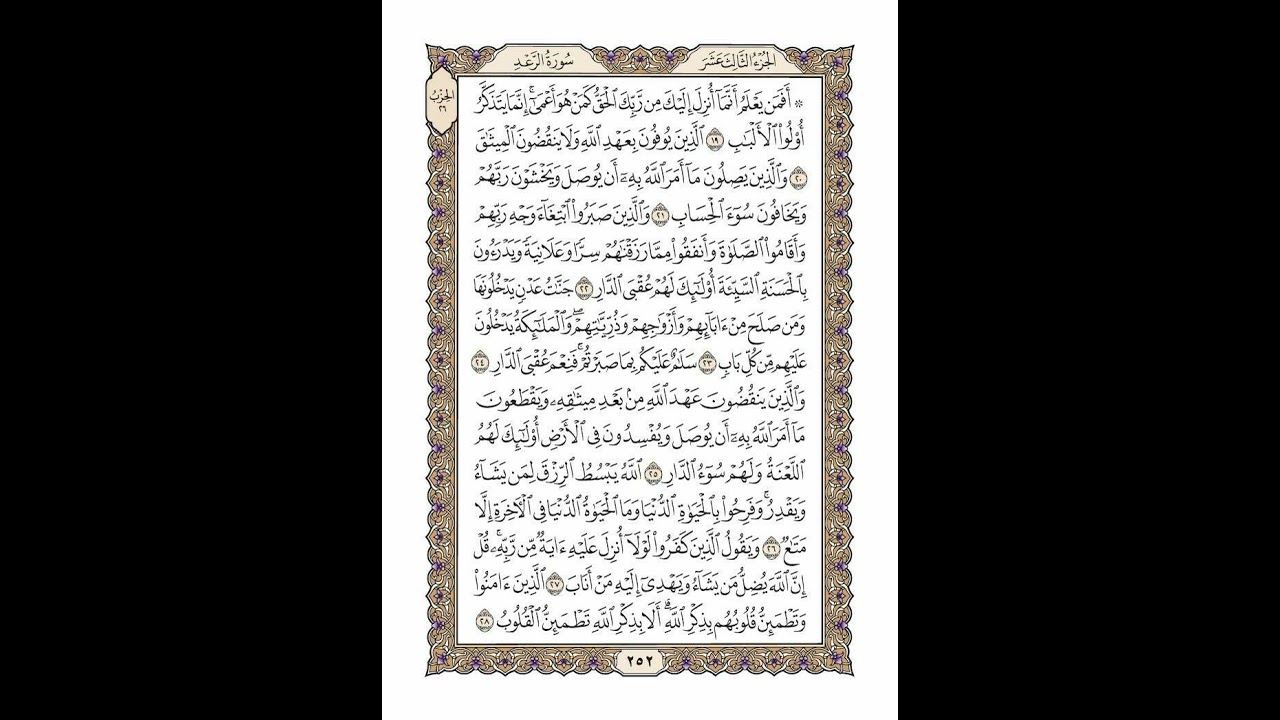 الجزء الثالث عشر
سورة الرعد
الحزب ٢٦
۞ أَفَمَن يَعْلَمُ أَنَّمَآ أُنزِلَ إِلَيْكَ مِن رَّبِّكَ ٱلْحَقُّ كَمَنْ هُوَ أَعْمَىٰٓۚ إِنَّمَا يَتَذَكَّرُ
أُو۟لُوا۟ ٱلْأَلْبَٰبِ ١٩ ٱلَّذِينَ يُوفُونَ بِعَهْدِ ٱللَّهِ وَلَا يَنقُضُونَ ٱلْمِيثَٰقَ
٢٠ وَٱلَّذِينَ يَصِلُونَ مَآ أَمَرَ ٱللَّهُ بِهِۦٓ أَن يُوصَلَ وَيَخْشَوْنَ رَبَّهُمْ
وَيَخَافُونَ سُوٓءَ ٱلْحِسَابِ ٢١ وَٱلَّذِينَ صَبَرُوا۟ ٱبْتِغَآءَ وَجْهِ رَبِّهِمْ
وَأَقَامُوا۟ ٱلصَّلَوٰةَ وَأَنفَقُوا۟ مِمَّا رَزَقْنَٰهُمْ سِرًّا وَعَلَانِيَةً وَيَدْرَءُونَ
بِٱلْحَسَنَةِ ٱلسَّيِّئَةَ أُو۟لَٰٓئِكَ لَهُمْ عُقْبَى ٱلدَّارِ ٢٢ جَنَّٰتُ عَدْنٍ يَدْخُلُونَهَا
وَمَن صَلَحَ مِنْ ءَابَآئِهِمْ وَأَزْوَٰجِهِمْ وَذُرِّيَّٰتِهِمْۖ وَٱلْمَلَٰٓئِكَةُ يَدْخُلُونَ
عَلَيْهِم مِّن كُلِّ بَابٍ ٢٣ سَلَٰمٌ عَلَيْكُم بِمَا صَبَرْتُمْۚ فَنِعْمَ عُقْبَى ٱلدَّارِ ٢٤
وَٱلَّذِينَ يَنقُضُونَ عَهْدَ ٱللَّهِ مِنۢ بَعْدِ مِيثَٰقِهِۦ وَيَقْطَعُونَ
مَآ أَمَرَ ٱللَّهُ بِهِۦٓ أَن يُوصَلَ وَيُفْسِدُونَ فِى ٱلْأَرْضِ أُو۟لَٰٓئِكَ لَهُمُ
ٱللَّعْنَةُ وَلَهُمْ سُوٓءُ ٱلدَّارِ ٢٥ ٱللَّهُ يَبْسُطُ ٱلرِّزْقَ لِمَن يَشَآءُ
وَيَقْدِرُۚ وَفَرِحُوا۟ بِٱلْحَيَوٰةِ ٱلدُّنْيَا وَمَا ٱلْحَيَوٰةُ ٱلدُّنْيَا فِى ٱلْءَاخِرَةِ إِلَّا
مَتَٰعٌ ٢٦ وَيَقُولُ ٱلَّذِينَ كَفَرُوا۟ لَوْلَآ أُنزِلَ عَلَيْهِ ءَايَةٌ مِّن رَّبِّهِۦۚ قُلْ
إِنَّ ٱللَّهَ يُضِلُّ مَن يَشَآءُ وَيَهْدِىٓ إِلَيْهِ مَنْ أَنَابَ ٢٧ ٱلَّذِينَ ءَامَنُوا۟
وَتَطْمَئِنُّ قُلُوبُهُم بِذِكْرِ ٱللَّهِۗ أَلَا بِذِكْرِ ٱللَّهِ تَطْمَئِنُّ ٱلْقُلُوبُ ٢٨
٢٥٢